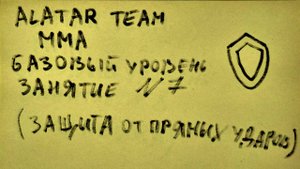 ALATAR TEAM
MMA
БАЗОВЫЙ УРОВЕНЬ
ЗАНЯТИЕ №7
(ЗАЩИТА ОТ ПРЯМЫХ УДАРОВ)